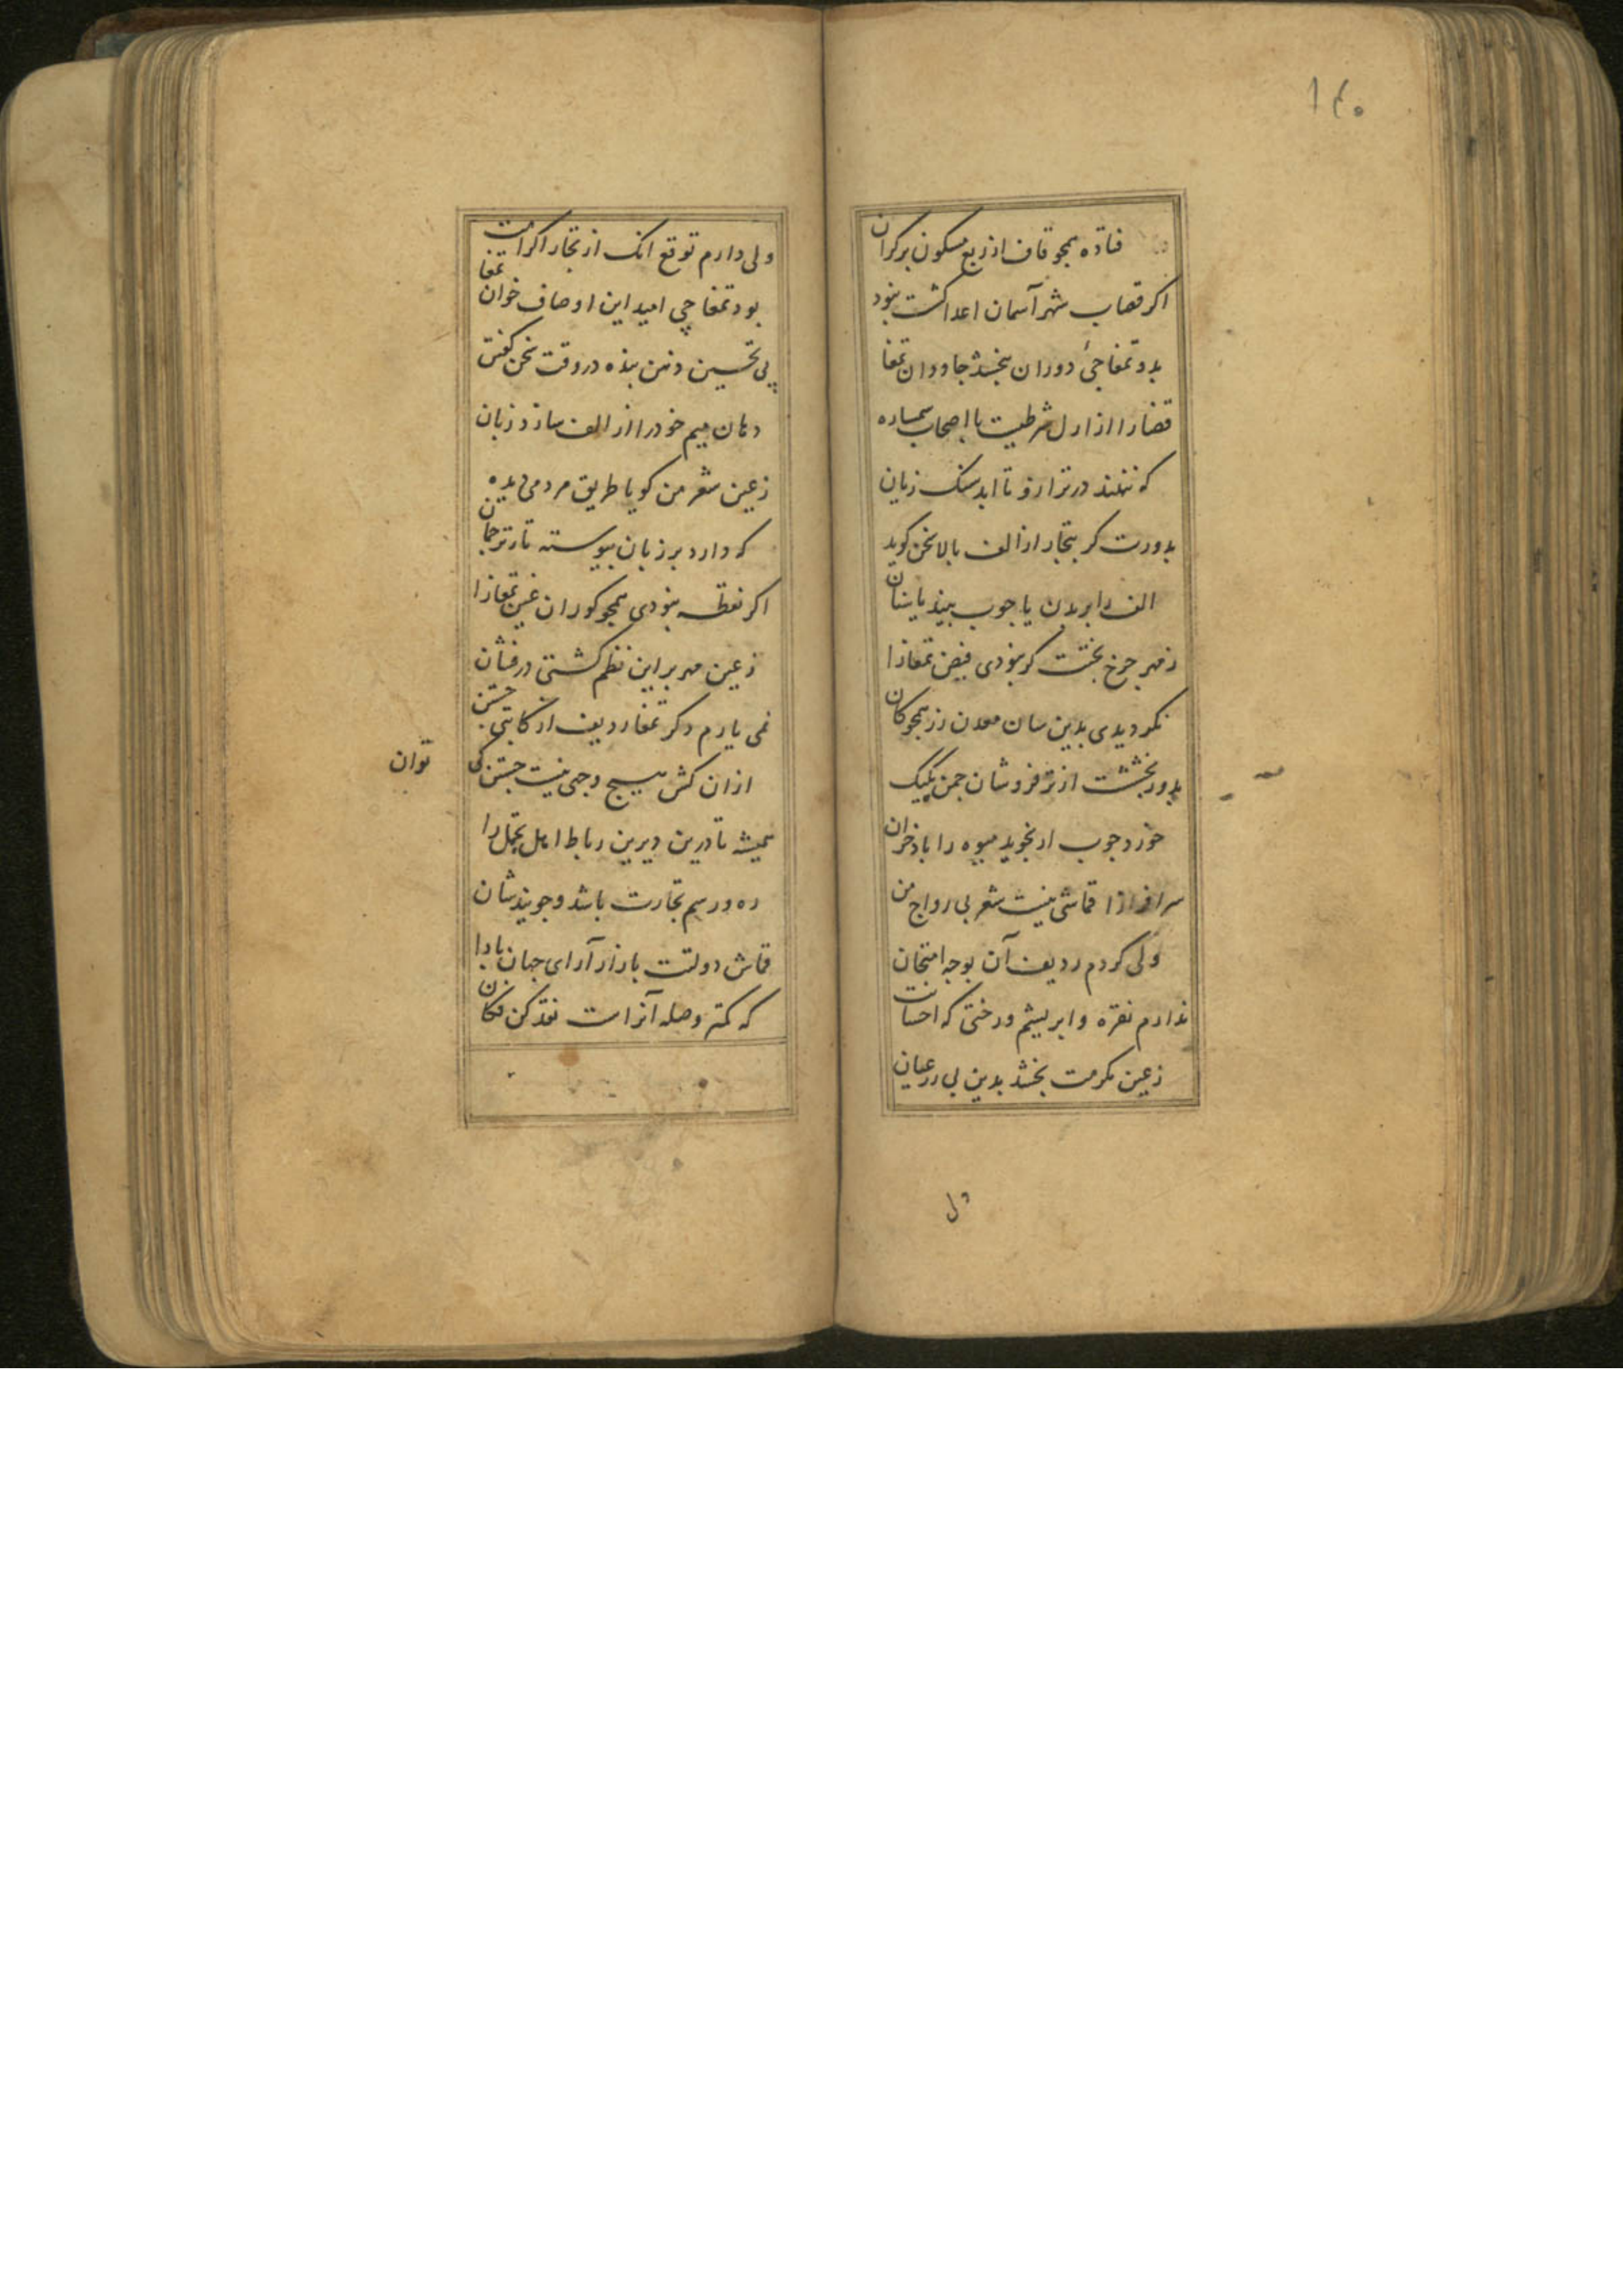 ۱۴۰
فتاده همجو قاف از ربع مسکون بر کران
اکر قصاب شهر آسمان اعدا کشت نبود
بدو تمغاجیٔ دوران نبخشد جاودان تمغا
قضا را از ازل شرطیست با اصحاب سمساره
که ننهند در ترازو تا ابد سنک زیان
بدورت کر بتجار از الف بالا سخن کوید
الف را بر بدن یا جوب بیند یا سنان
ز مهر جرخ بختت کر نبودی فیض تمغا را
نکردیدی بدین سان معدن زر همجو کان
بدور بخششت از تره فروشان جمن یکیک
خورد جوب ار نجوید میوه را باذخران
سرافرازا قماشی نیست شعر بی رواج من
ولی کردم ردیف آن بوجه امتحان
ندارم نقره و ابریشم و رختی که احسانت
ز عین مکرمت بخشد بدین بی زر عیان
ول
ولی دارم توقع انک از تجار اکرامت
بود تمغاچی امید این اوصاف خوان تمغا
پی تحسین ذهن بنده در وقت سخن کفتن
دهان میم خود را از الف سازد زبان
ز عین شعر من کویا طریق مردمی دیده
که دارد بر زبان پیوسته تا ترجمان
اکر نقطه نبودی همجو کوران عین تمغا را
ز عین مهر بر این نظم کشتی درفشان
نمی یارم دکر تمغا ردیف از کاتبی جستن
ازان کش هیج وجهی نیست جستن کی
توان
همیشه تا درین دیرین رباط اهل تجمل را
ره و رسم تجارت باشد و جویند شان
قماش دولتت بازار آرای جهان بادا
که کمتر وصله آنراست نقد کن فکان